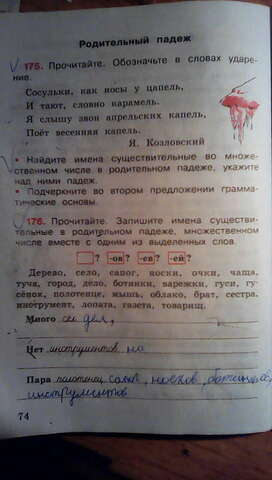 Родительный падеж
175. Прочитайте. Обозначьте в словах ударе-
ние.
Сосульки, как носы у цапель,
И тают, словно карамель.
Я слышу звон апрельских капель,
Поёт весенняя капель.
Я. Козловский
• Найдите имена существительные во множе-
ственном числе в родительном падеже, укажите
над ними падеж.
• Подчеркните во втором предложении грамма-
тические основы.
176. Прочитайте. Запишите имена существи-
тельные в родительном падеже, множественном
числе вместе с одним из выделенных слов.
? -ов? -ев? -ей?
Дерево, село, сапог, носки, очки, чаща,
туча, город, дело, ботинки, варежки, гуси, гу-
сёнок, полотенце, мышь, облако, брат, сестра,
инструмент, лопата, газета, товарищ.
Много дел,
Нет инструментов но
Пара полотенец сапог, носков,
инструментов
74